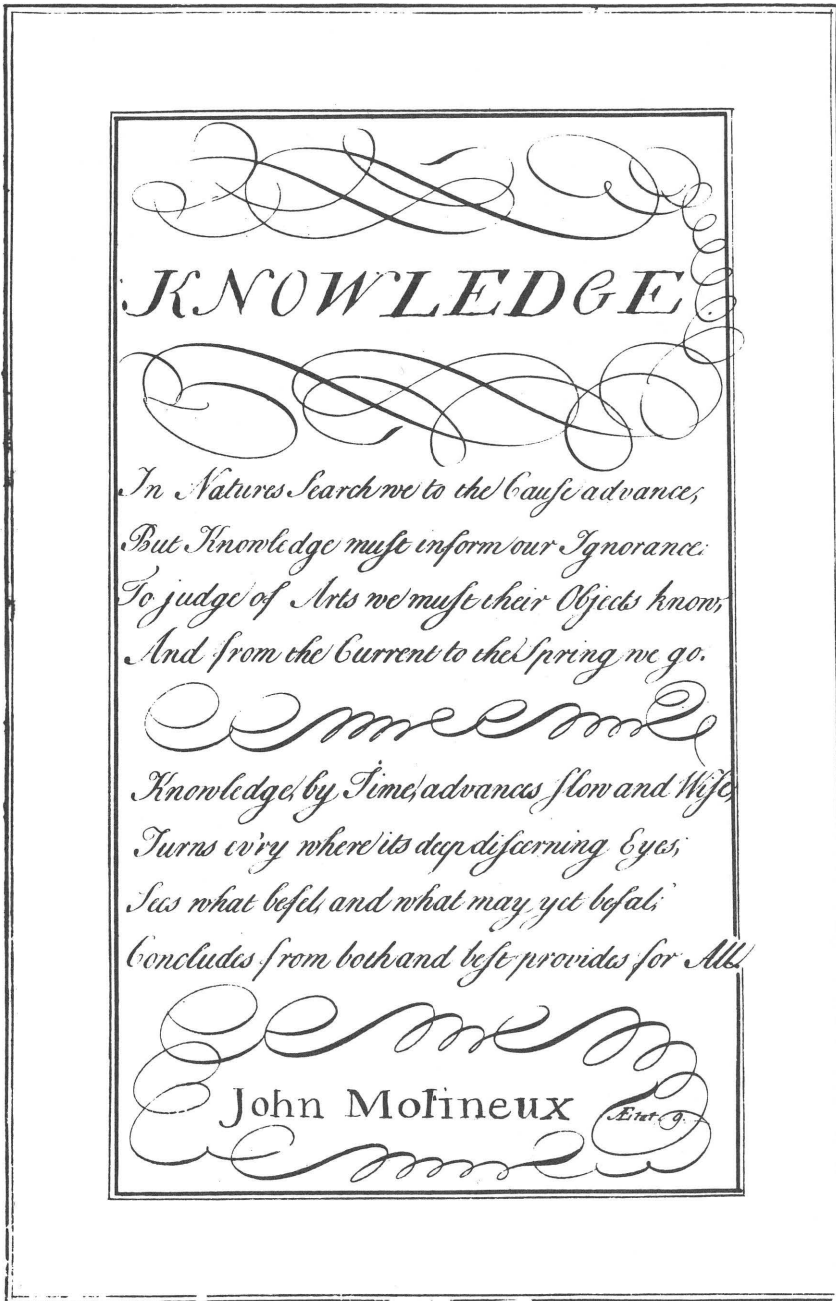 KNOWLEDGE.
In Natures Search we to the Cauſe advance,
But Knowledge muſt inform our Ignorance:
To judge of Arts we muſt their Objects know,
And from the Current to the Spring we go.
Knowledge, by Time, advances ſlow and Wiſe,
Turns ev'ry where its deep diſcerning Eyes;
Sees what befel, and what may yet befal;
Concludes from both and beſt provides for All.
John Molineux Ætat. 9.